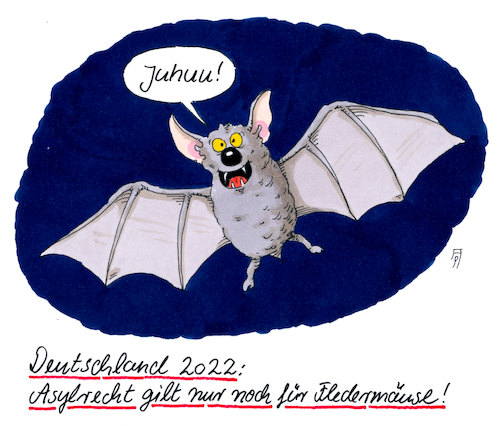 Juhuu!
Deutschland 2022:
Asylrecht gilt nur noch für Fledermäuse!